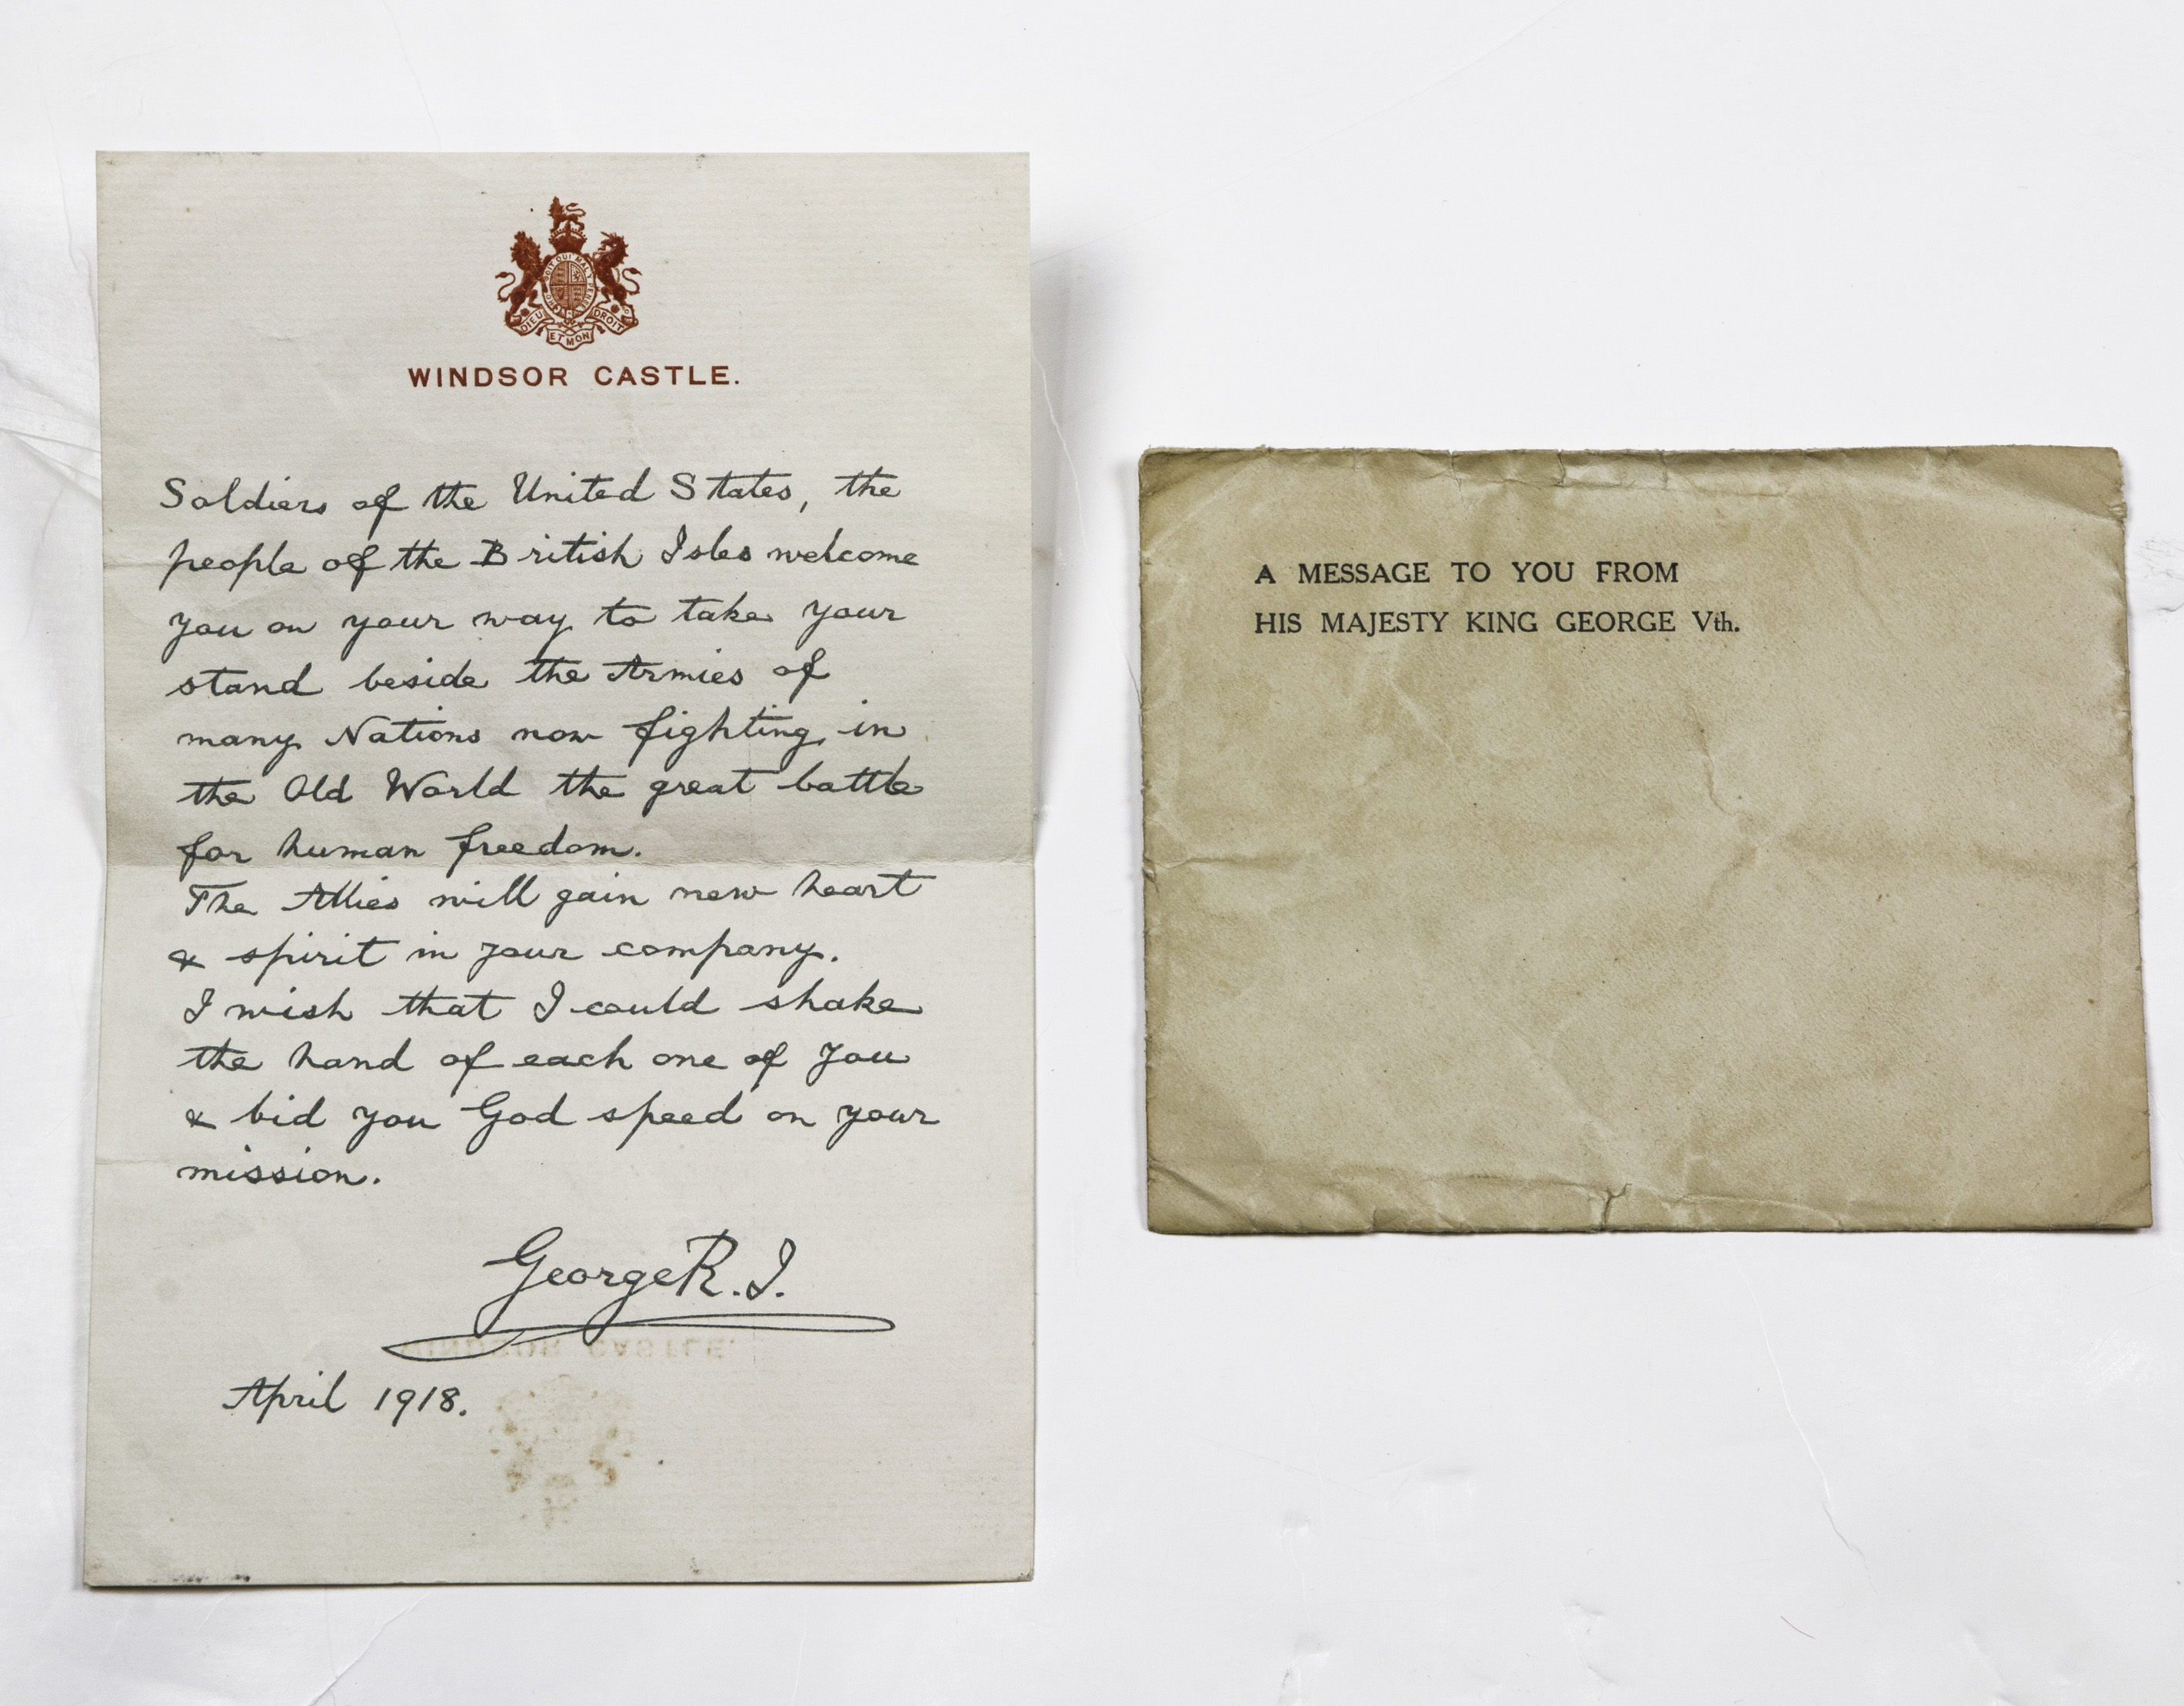 HONI SOIT QUI MAL Y PENSE
DIEU ET MON DROIT
WINDSOR CASTLE.
Soldiers of the United States, the
people of the British Isles welcome
you on your way to take your
stand beside the Armies of
many Nations now fighting in
the Old World the great battle
for human freedom.
The Allies will gain new heart
& spirit in your company.
I wish that I could shake
the hand of each one of you
& bid you God speed on your
mission.
George R.I.
WINDSOR CASTLE.
April 1918.
A MESSAGE TO YOU FROM
HIS MAJESTY KING GEORGE Vth.